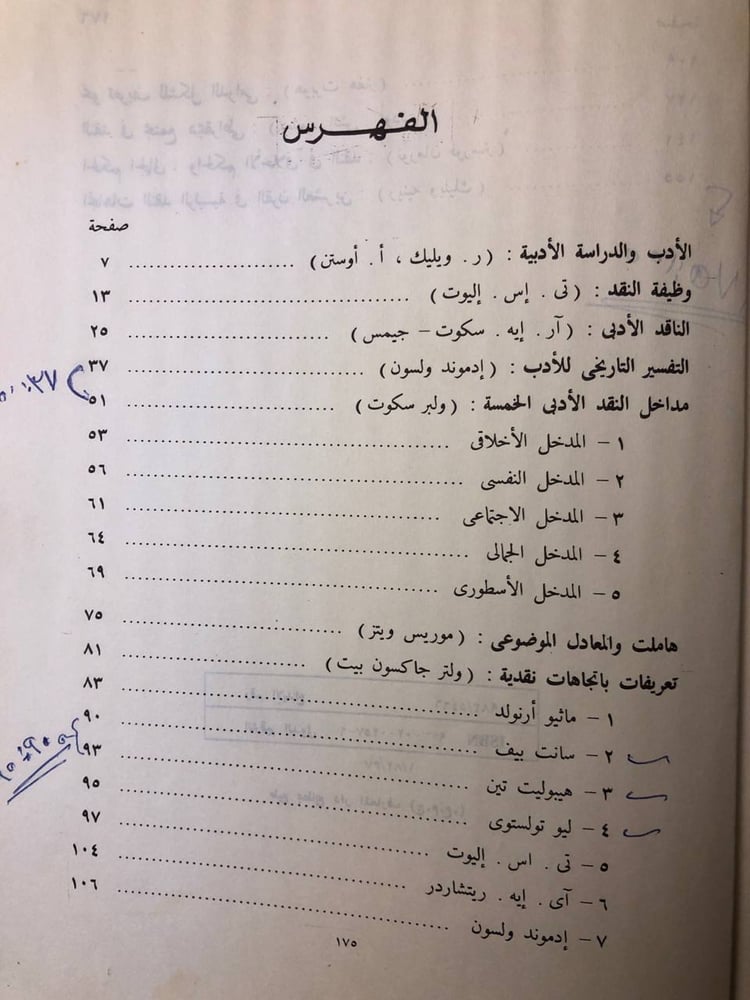 الفهرس
صفحة
الأدب والدراسة الأدبية : ( ر . ويليك ، أ . أوستن ) ........................ ٧
وظيفة النقد : ( تى . إس . إليوت ) ........................ ١٣
الناقد الأدبى : ( آر . إيه . سكوت – جيمس ) ........................ ٢٥
التفسير التاريخى للأدب : ( إدموند ولسون ) ........................ ٣٧
مداخل النقد الأدبى الخمسة : ( ولبر سكوت ) ........................ ٥١
١ – المدخل الأخلاقى ........................ ٥٣
٢ – المدخل النفسى ........................ ٥٦
٣ – المدخل الاجتماعى ........................ ٦١
٤ – المدخل الجمالى ........................ ٦٤
٥ – المدخل الأسطورى ........................ ٦٩
هاملت والمعادل الموضوعى : ( موريس ويتز ) ........................ ٧٥
تعريفات باتجاهات نقدية : ( ولتر جاكسون بيت ) ........................ ٨١
١ – ماثيو أرنولد ........................ ٨٣
٢ – سانت بيف ........................ ٩٠
٣ – هيبوليت تين ........................ ٩٣
٤ – ليو تولستوى ........................ ٩٥
٥ – تى . اس . إليوت ........................ ٩٧
٦ – آى . إيه . ريتشاردر ........................ ١٠٤
٧ – إدموند ولسون ........................ ١٠٦
١٧٥